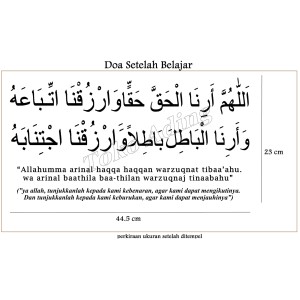 Doa Setelah Belajar
اَللّٰهُمَّ أَرِنَا الْحَقَّ حَقًّا وَارْزُقْنَا اتِّبَاعَهُ
وَأَرِنَا الْبَاطِلَ بَاطِلًا وَارْزُقْنَا اجْتِنَابَهُ
Toko Ading
"Allahumma arinal haqqa haqqan warzuqnat tibaa'ahu.
wa arinal baathila baa-thilan warzuqnaj tinaabahu"
("ya allah, tunjukkanlah kepada kami kebenaran, agar kami dapat mengikutinya.
Dan tunjukkanlah kepada kami keburukan, agar kami dapat menjauhinya")
23 cm
44.5 cm
perkiraan ukuran setelah ditempel